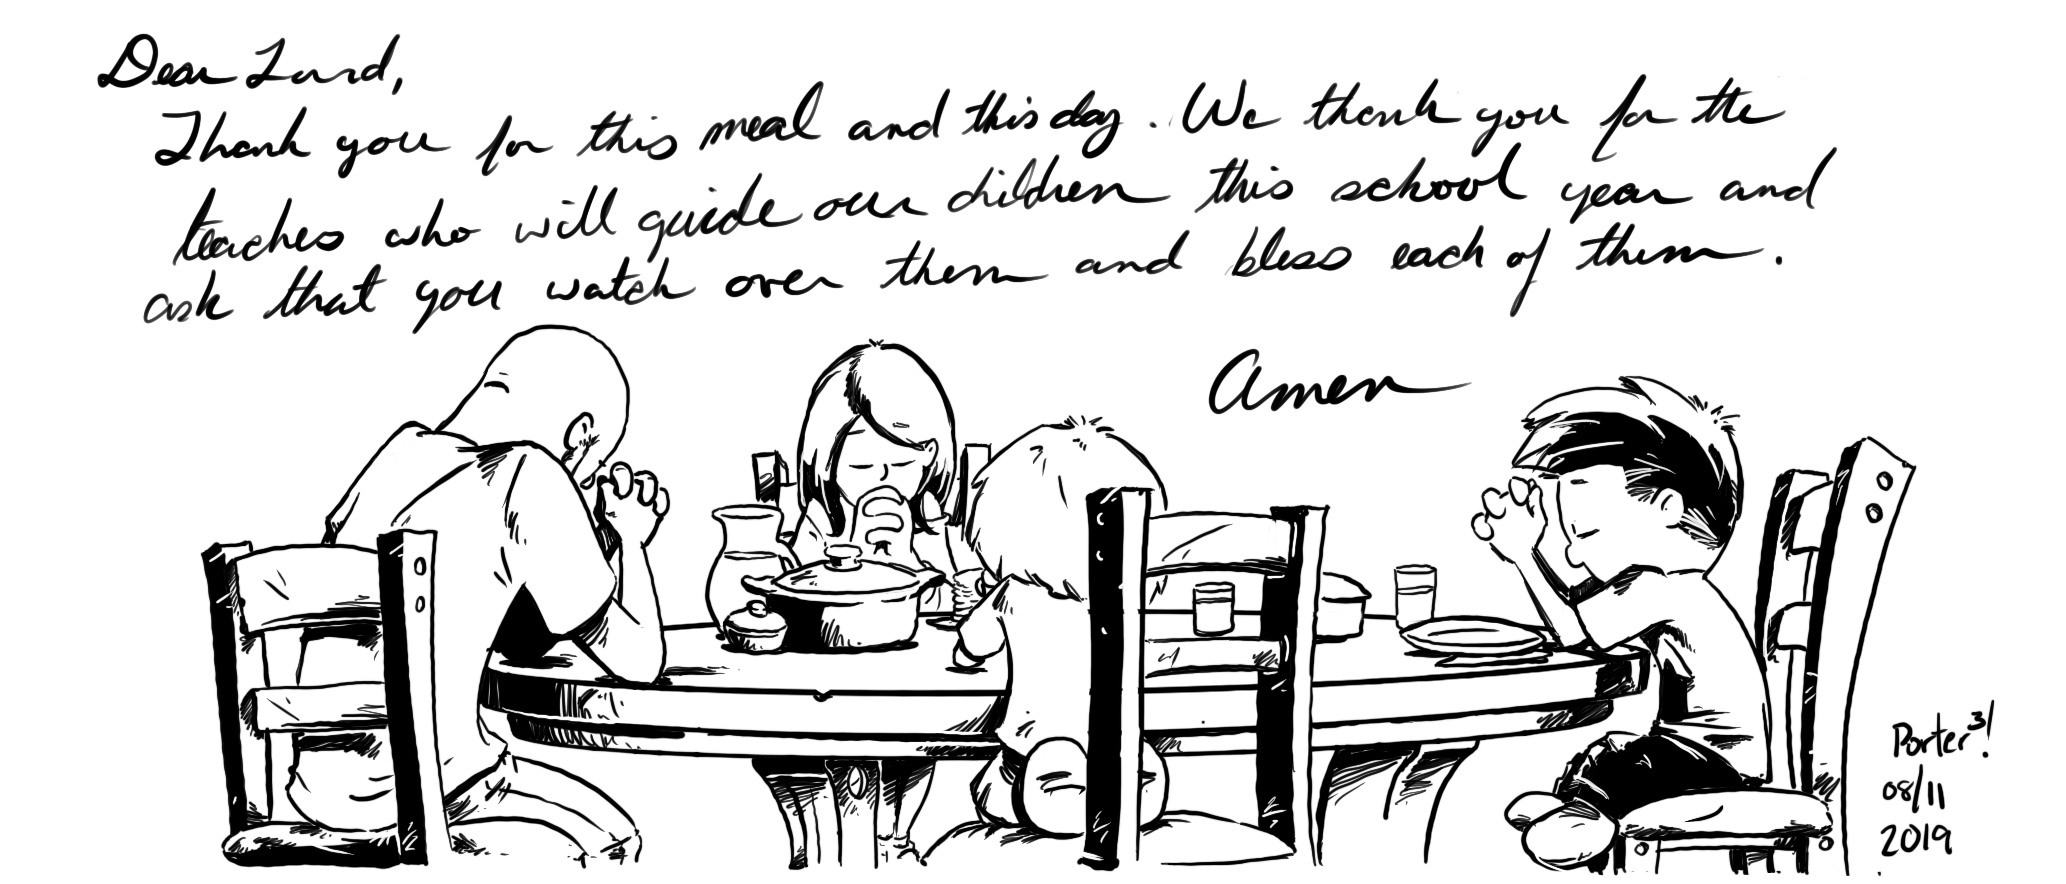 Dear Lord,
Thank you for this meal and this day. We thank you for the
teachers who will guide our children this school year and
ask that you watch over them and bless each of them.
Amen
Porter³!
08/11
2019